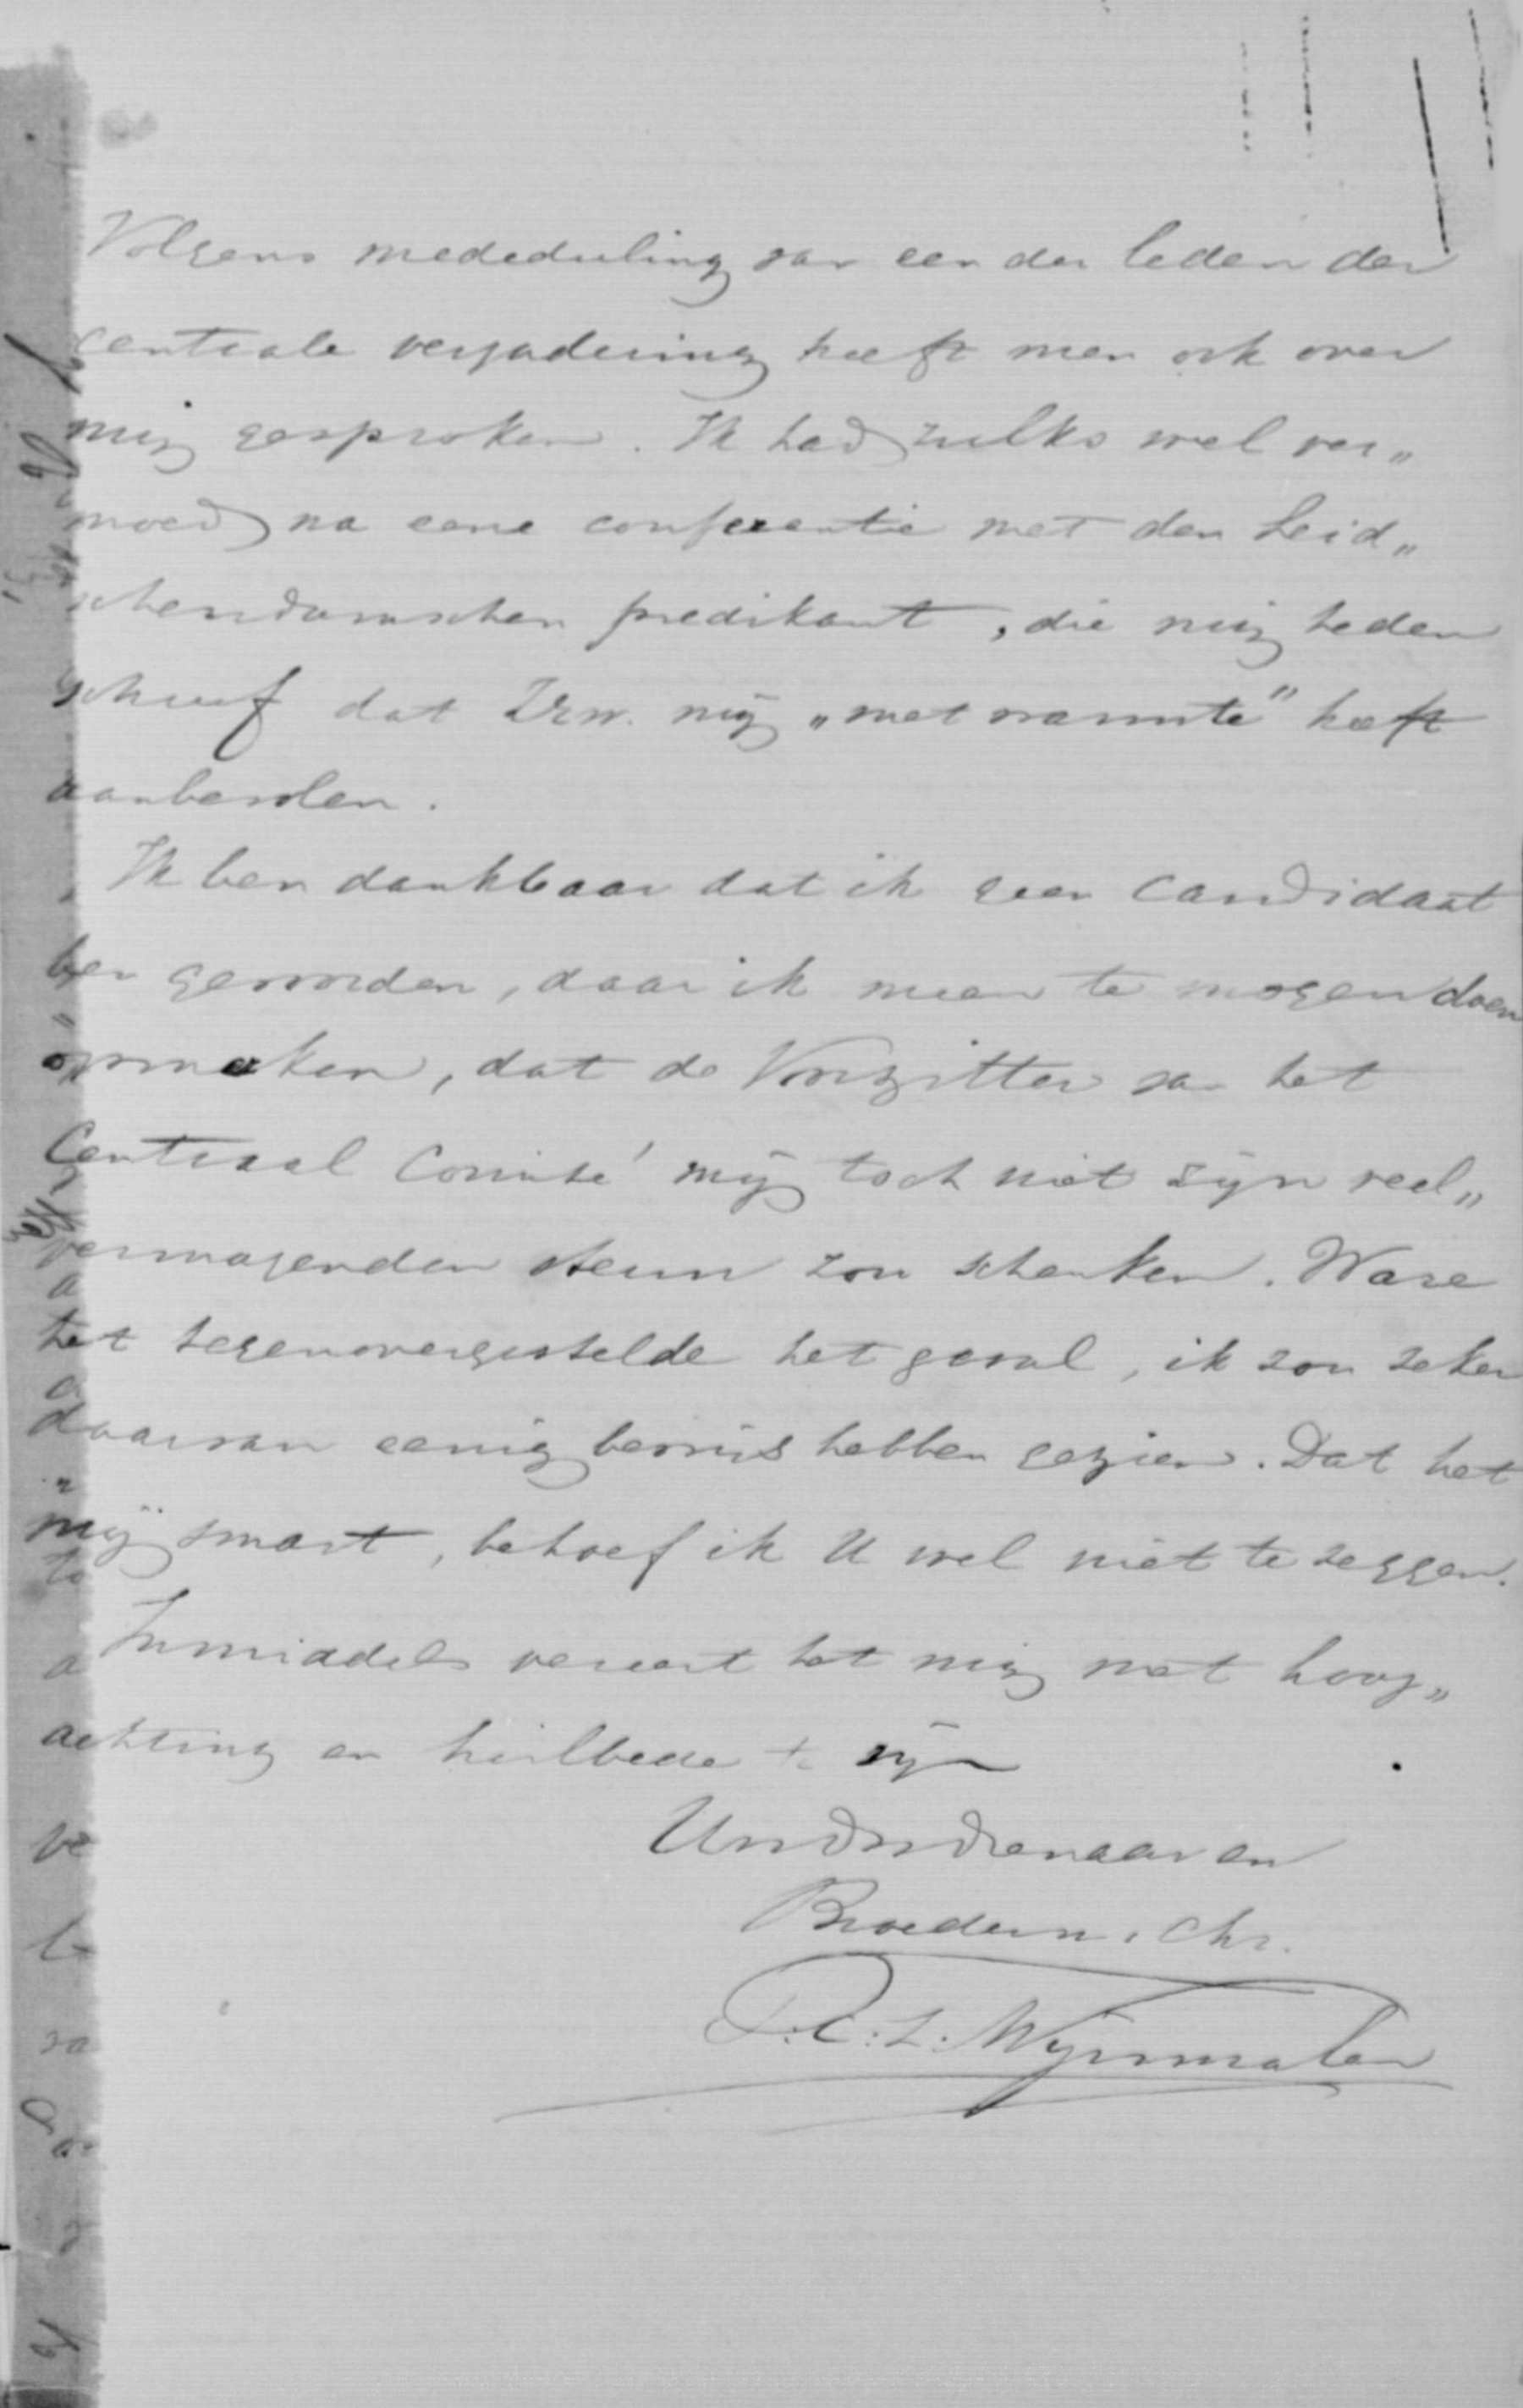 Volgens mededeeling van een der leden der
centrale vergadering heeft men ook over
mij gesproken. Ik had zulks wel ver„
moed na eene conferentie met den Leid„
schendamschen predikant, die mij heden
schreef dat ZEw. mij „met warmte" heeft
aanbevolen.
Ik ben dankbaar dat ik geen candidaat
ben geworden, daar ik meen te mogen doen
opmaken, dat de Voorzitter van het
Centraal Comité mij toch niet zijn veel„
vermogenden steun zou schenken. Ware
het tegenovergestelde het geval, ik zou zeker
daarvan eenig bewijs hebben gezien. Dat het
mij smart, behoef ik U wel niet te zeggen.
Inmiddels vereert het mij met hoog„
achting en heilbede te zijn
Uw dw dienaar en
Broeder in Chr.
T.C.L. Wijnmalen